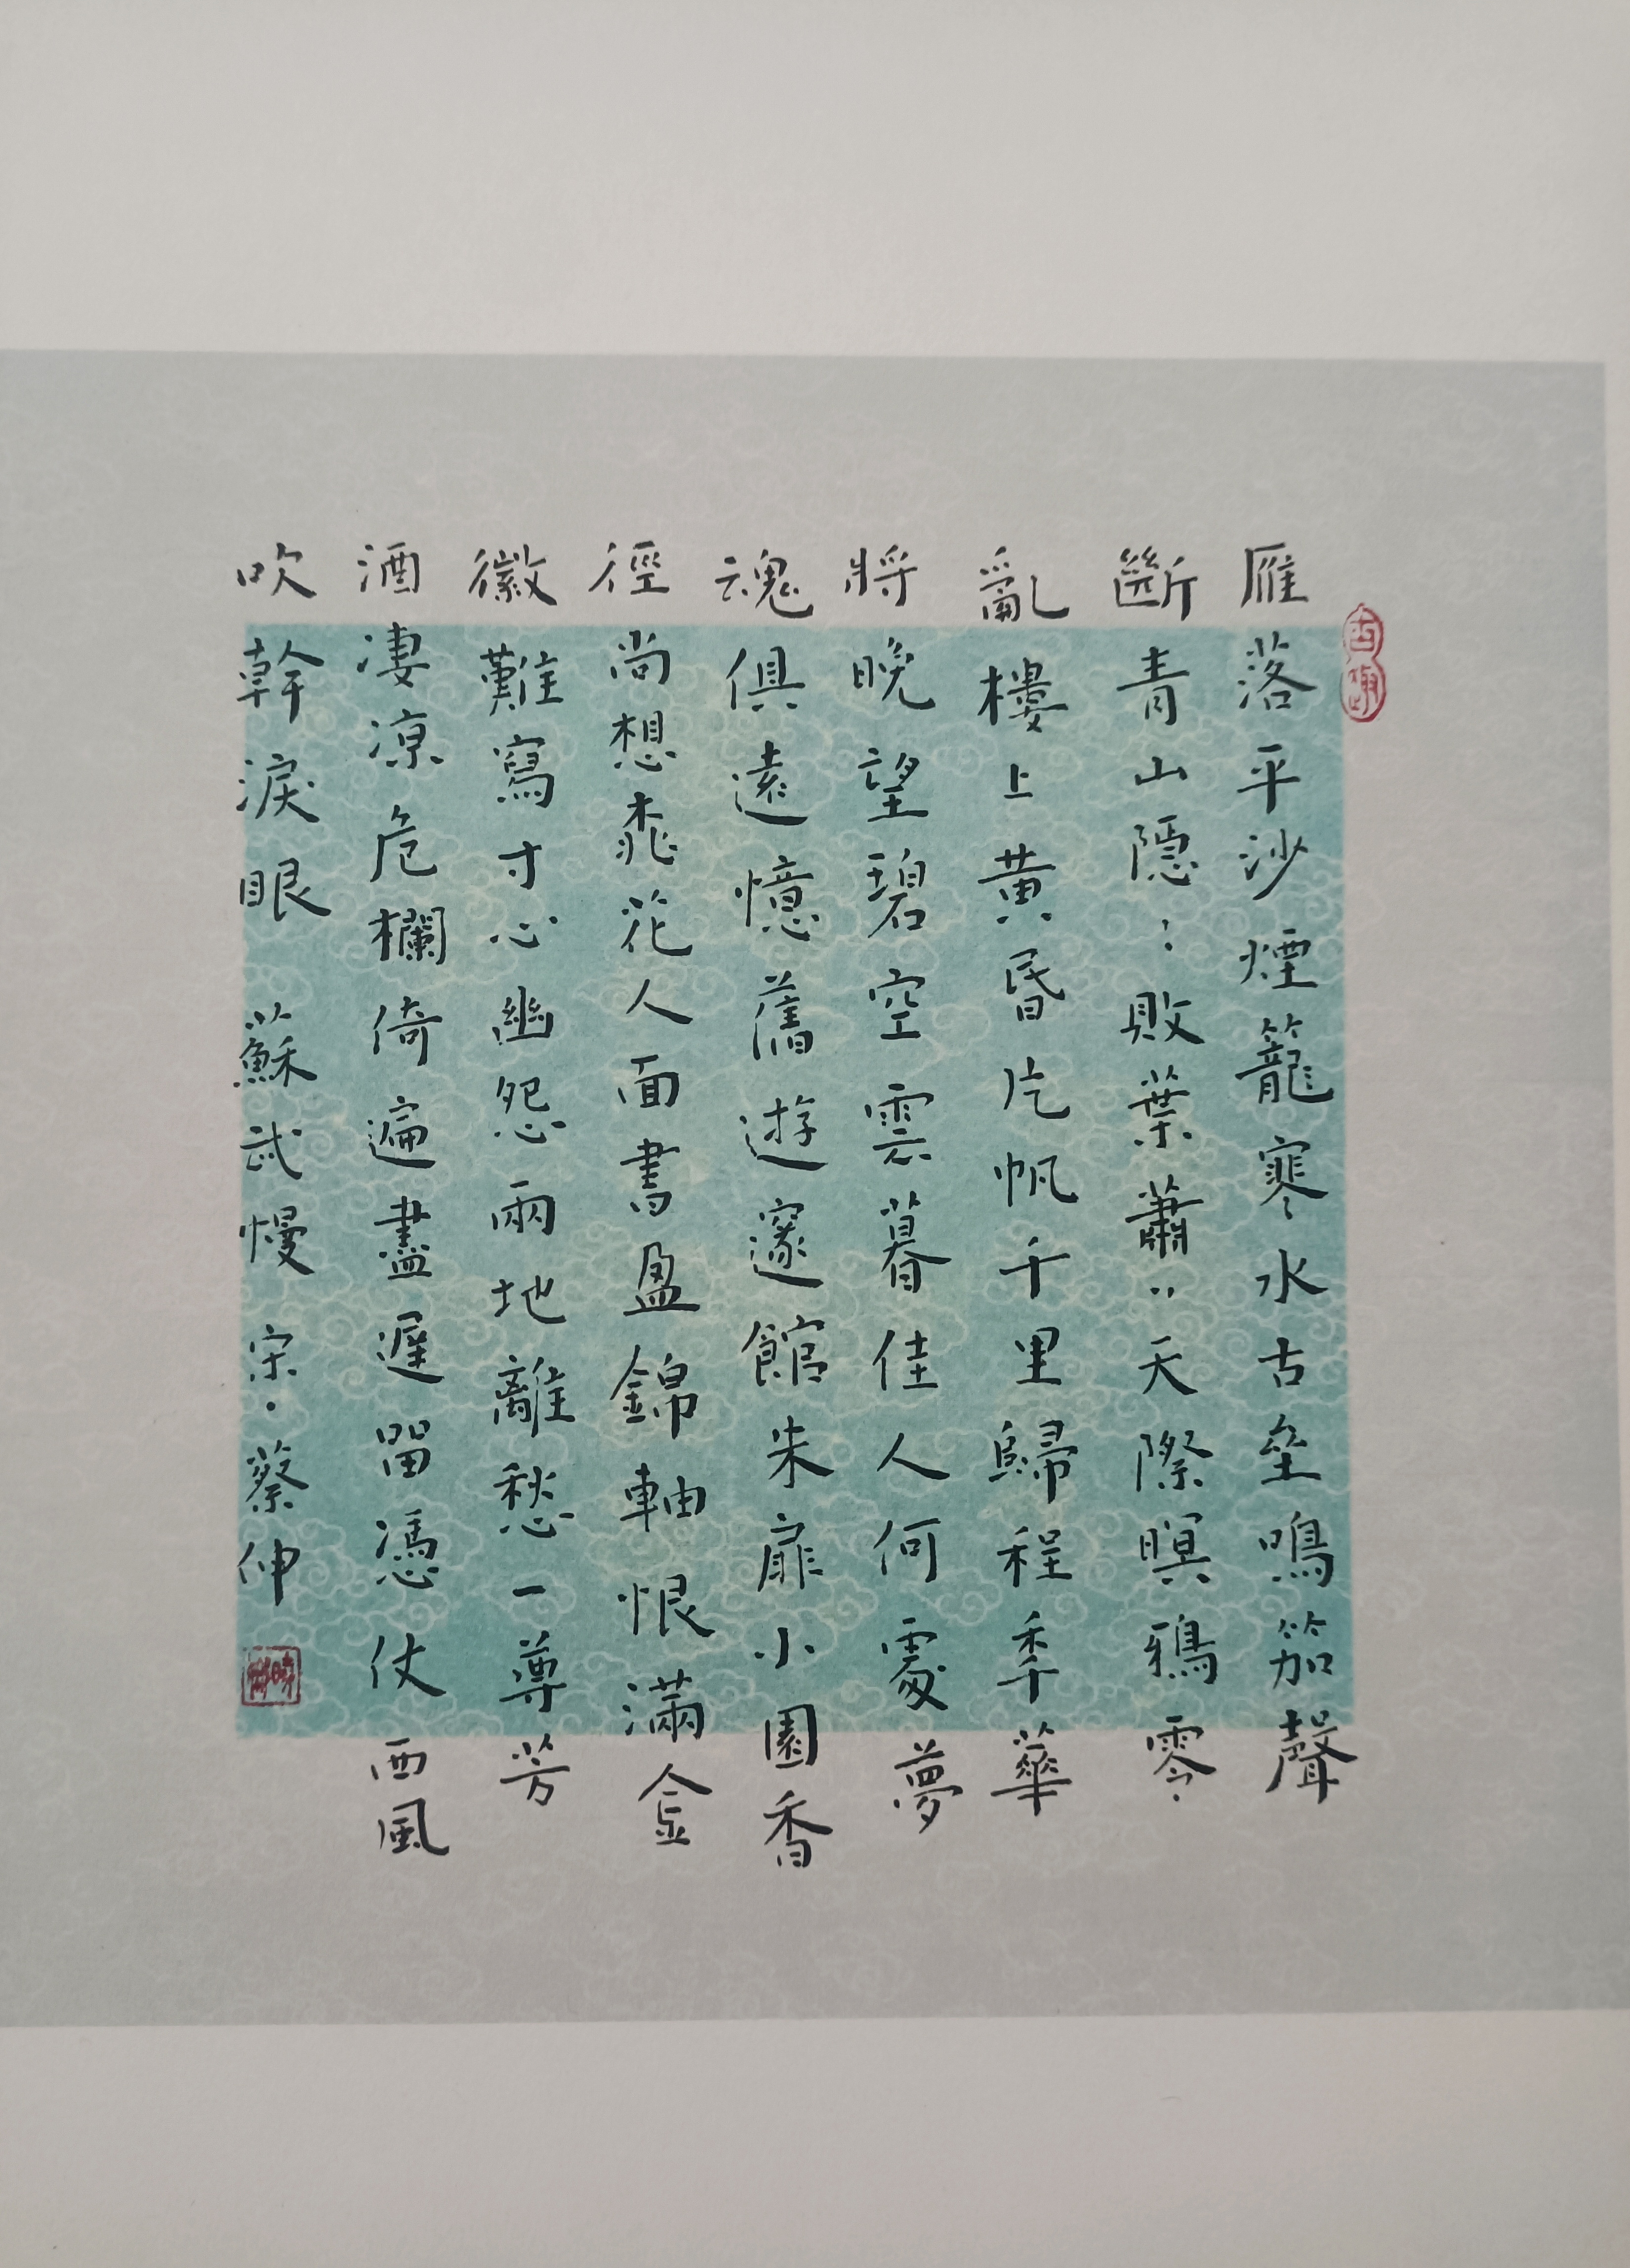 雁落平沙煙籠寒水古壘鳴笳聲
斷青山隱：敗葉蕭‥天際暝鴉零
亂樓上黃昏片帆千里歸程秊華
將晚望碧空雲暮佳人何處夢
魂俱遠憶舊遊邃館朱扉小園香
徑尚想桃花人面書盈錦軸恨滿金
徽難寫寸心幽怨兩地離愁一尊芳
酒淒涼危欄倚遍盡遲留憑仗西風
吹幹淚眼 蘇武慢 宋·蔡伸